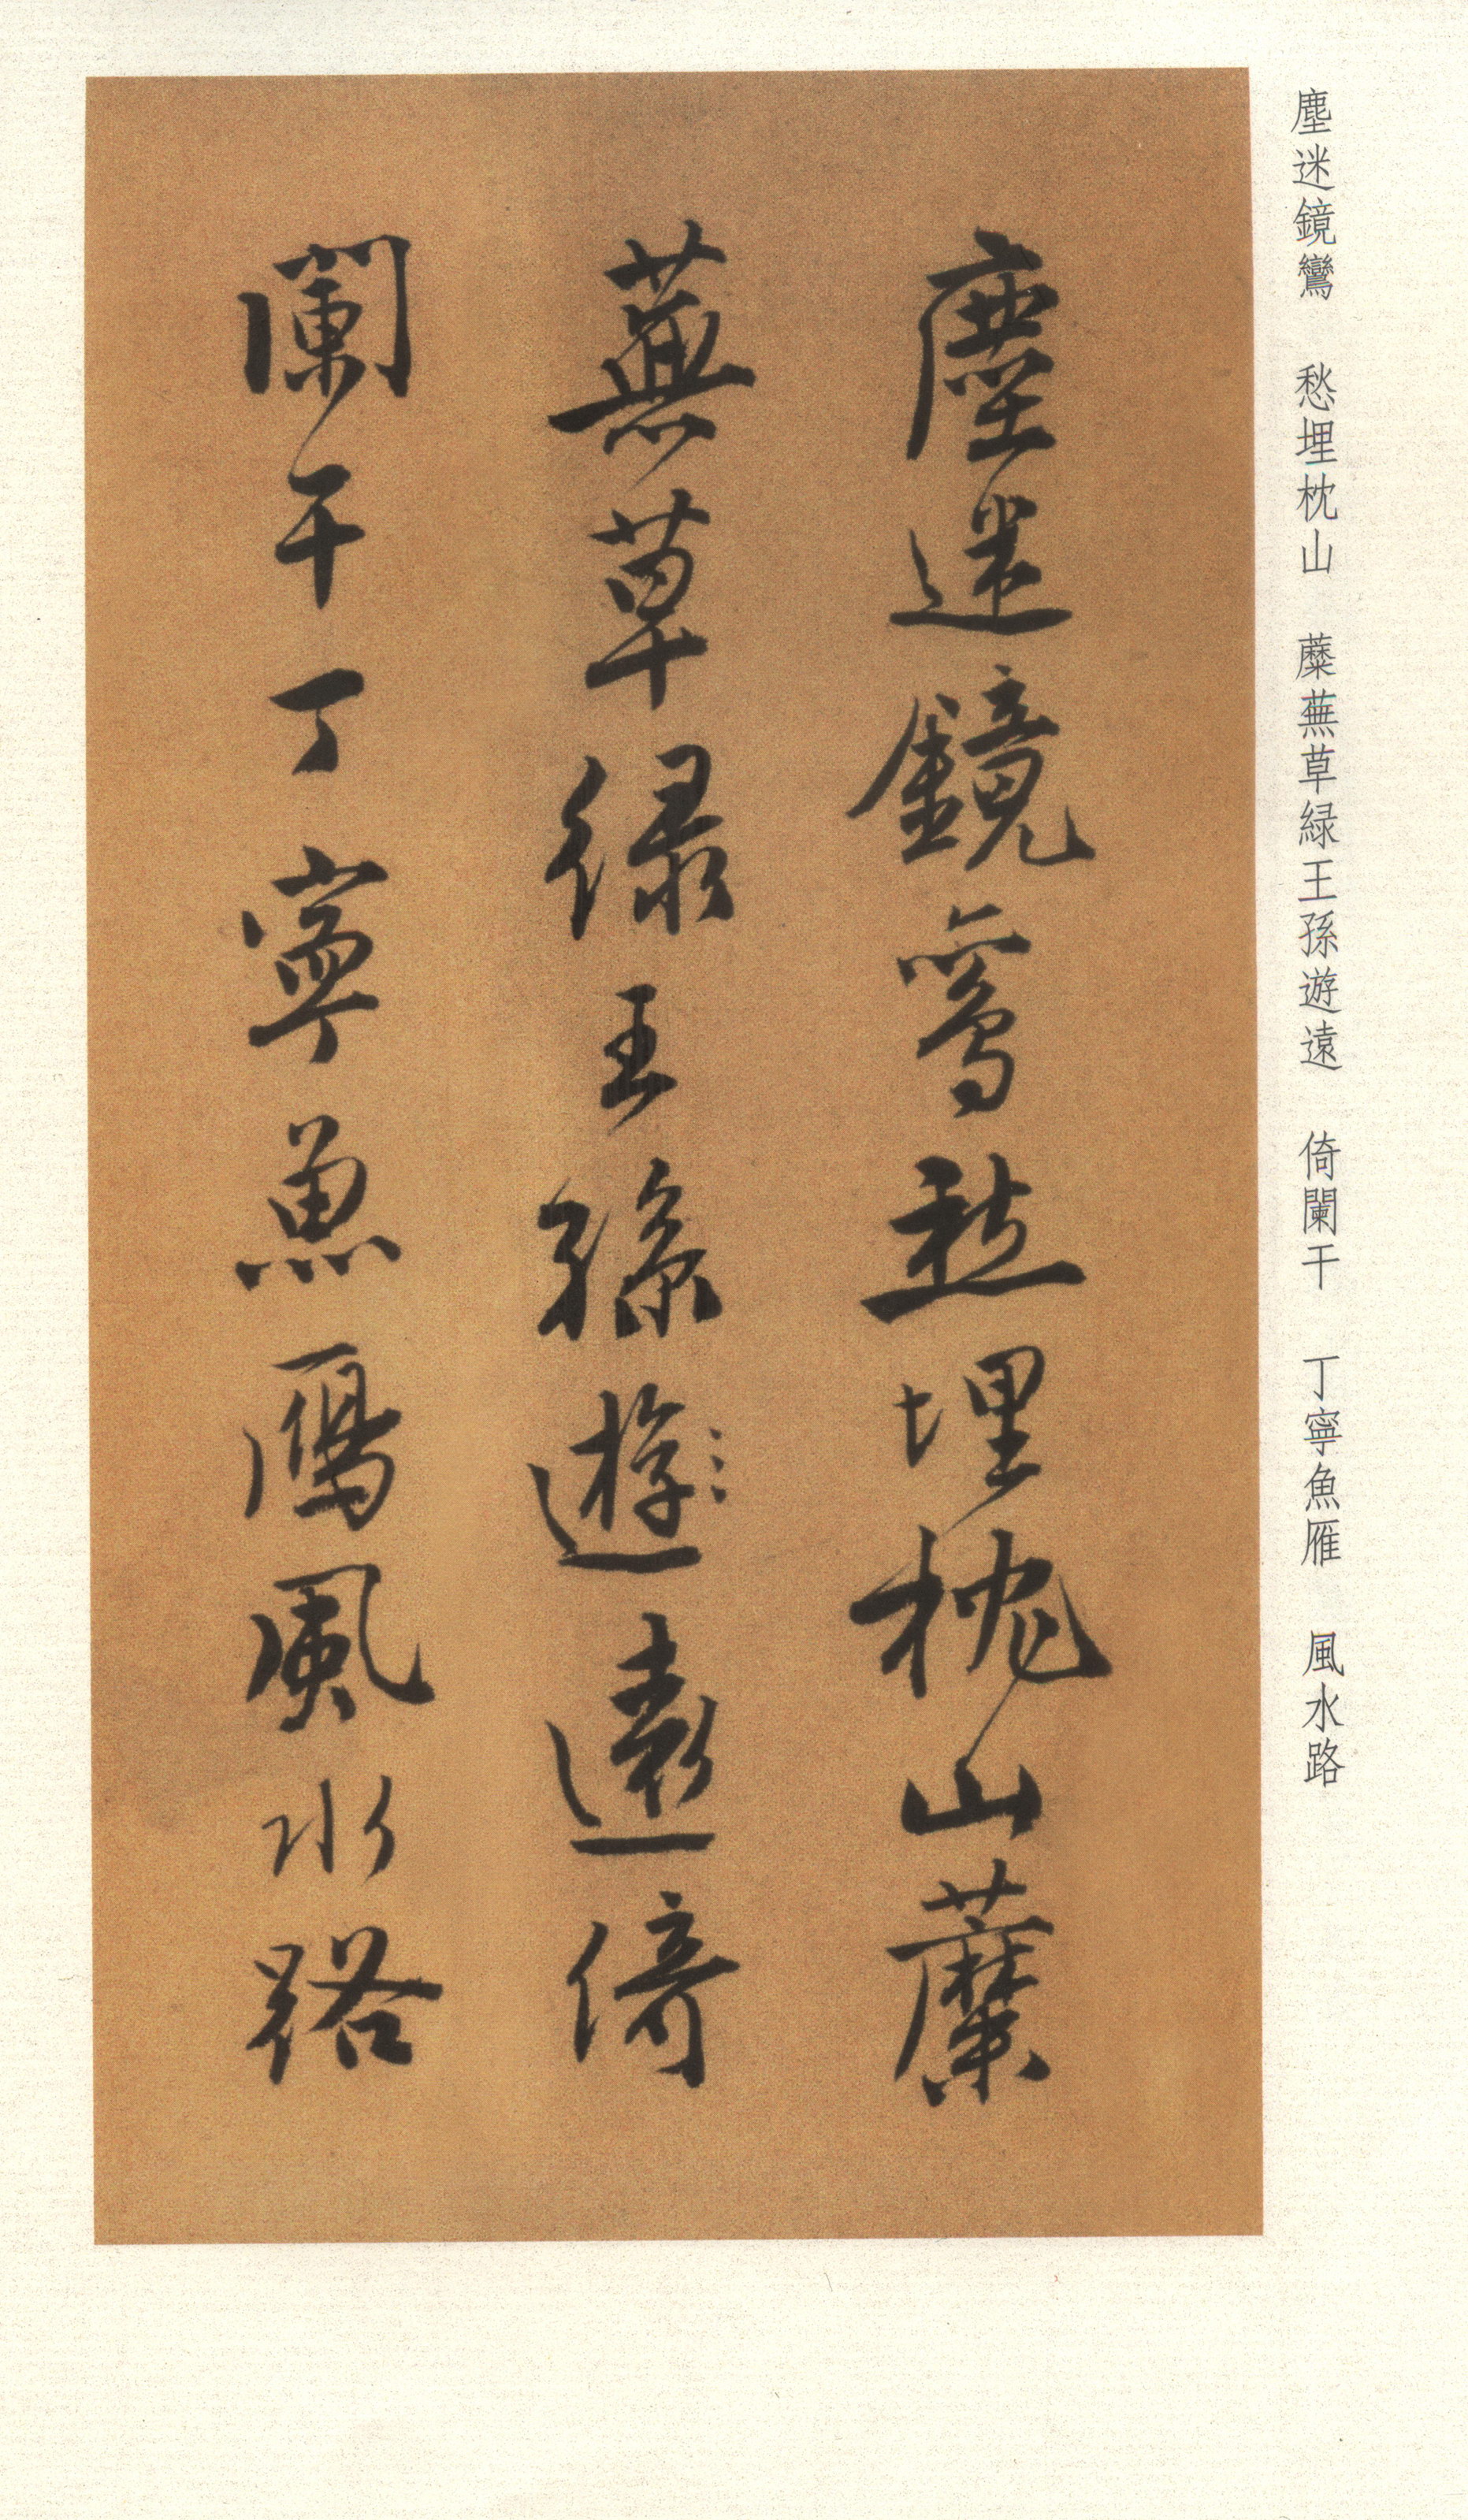 塵迷鏡鸞　愁埋枕山　蘼蕪草緑王孫遊遠　倚闌干　丁寧魚雁　風水路
塵迷鏡鸞愁埋枕山蘼
蕪草緑王孫遊遠倚
闌干丁寧魚雁風水路